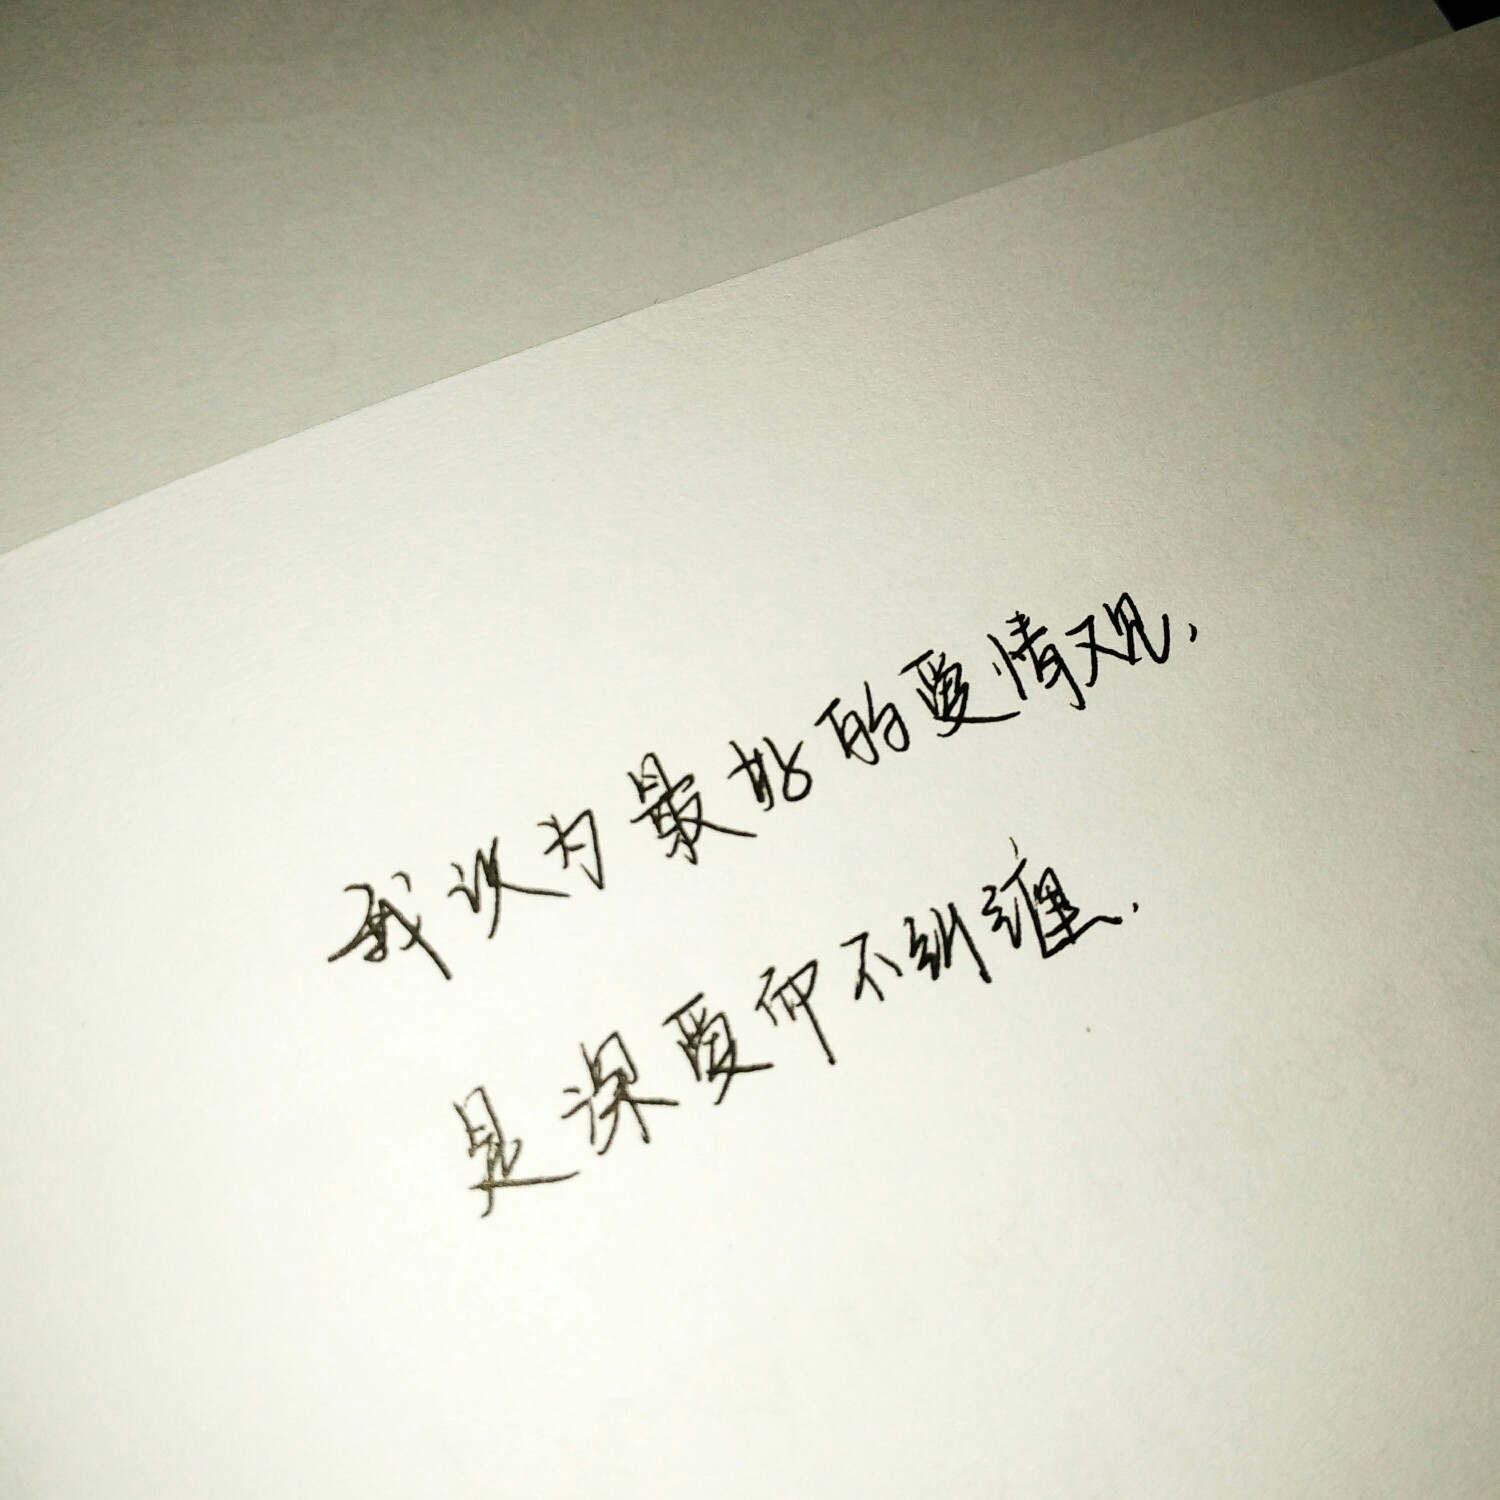 我认为最好的爱情观，
是深爱却不纠缠．